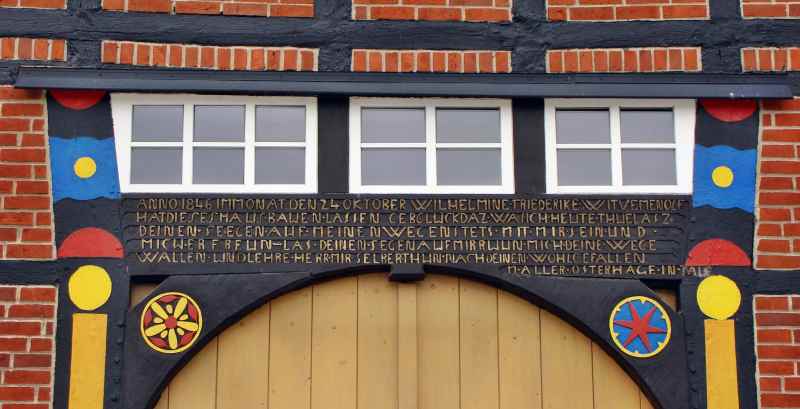 ANNO·1846·IMMONAT·DEN·24·OKTOBER·WILHELMINE·FRIEDERIKE·WITVEMENOLF
HATDIESES·HAUS·BAUEN·LASSEN·GEBGLUCKDAZ·WASICH·HEUTE·THUE
DEINEN·SEEGEN·AUF·MEINEN·WEGEN·STETS·MIT·MIR·SEIN·UND·
MICH·ERFREUN·LAS·DEINEN·SEGEN·AUF·MIR·RUUN·MICH·DEINE·WEGE
WALLEN·UND·LEHRE·HERR·MIR·SELBER·THUN·NACH·DEINEN·WOHLGEFALLEN
M·ALLER·OSTERHAGE·IN·TALE